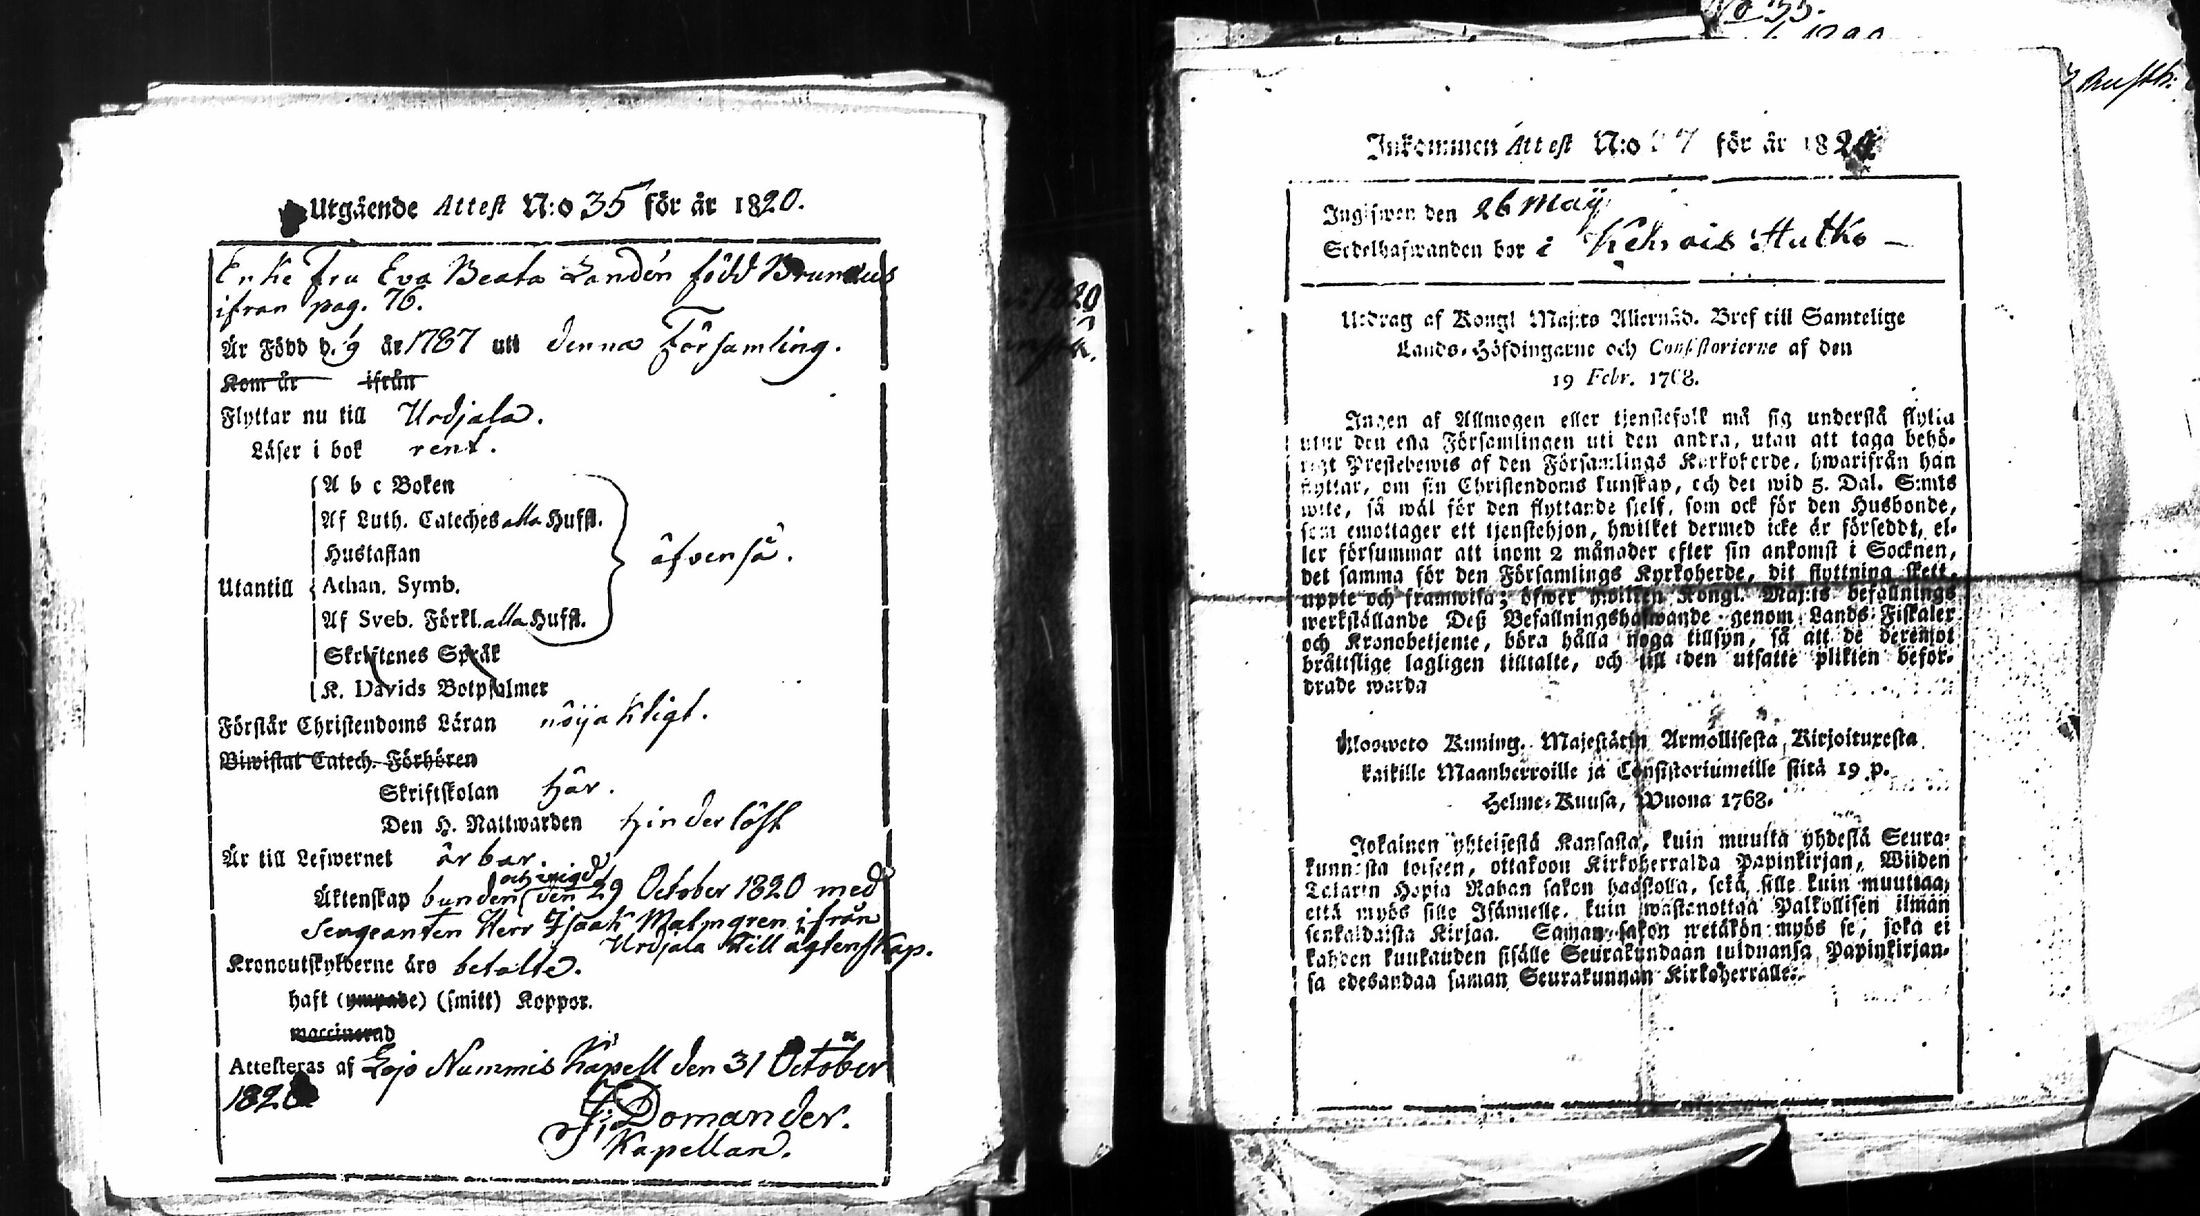 Utgående Attest N:o 35 för år 1820.
Enke Fru Eva Beata Landén född Brunnius
ifrån pag. 76.
Är Född d. 1/9 år 1787 uti denna Församling.
Kom år ifrån
Flyttar nu till Urdjala.
Läser i bok rent.
A b c Boken
Af Luth. Catechesalla Hufst.
Hustaflan
äfven så.
Utantill Athan. Symb.
Af Sveb. Förkl. alla Hufst.
Skriftenes Språk
K. Davids Botpsalmer
Förstår Christendoms Läran nöijaktigt.
Biwistat Catech. Förhören
Skriftskolan här.
Den H. Nattwarden hinderlöst
Är till Lefwernet ärbar.
och vigd
Äktenskap bunden den 29 October 1820 med
Sergeanten Herr Isaak Malmgren ifrån
Urdjala till ägtenskap.
Kronoutskylderne äro betalte.
haft (ympade) (smitt) Koppor.
waccinerad
Attesteras af Lojo Nummis Kapell den 31 October
1820
J. Domander.
Kapellan.
Inkommen Attest N:o 7 för år 1820
Ingifwen den 26 Maij
Sedelhafwanden bor i Hutko
Utdrag af Kongl Maj:ts Allernåd. Bref till Samtelige
Lands-Höfdingarne och Consistorierne af den
19 Febr. 1768.
Ingen af Allmogen eller tjenstefolk må sig understå flytta
utur den ena Församlingen uti den andra, utan att taga behö-
rigt Prestebewis af den Församlings Kyrkoherde, hwarifrån han
flyttar, om sin Christendoms kunskap, och det wid 5. Dal. S:mts
wite, så wäl för den flyttande sielf, som ock för den Husbonde,
som emottager ett tjenstehjon, hwilket dermed icke är försedt, el-
ler försummar att inom 2 månader efter sin ankomst i Socknen,
det samma för den Församlings Kyrkoherde, dit flyttning skett,
uppte och framwisa; öfwer hwilken Kongl. Maj:ts befallnings
werkställande Deß Befallningshafwande genom Lands-Fiskaler
och Kronobetjente, böra hålla noga tillsyn, så att de deremot
bråttslige lagligen tilltalte, och till den utsatte plikten befor-
drade warda
Uloosweto Kuning. Majestätin Armollisesta Kirjoituxesta
kaikille Maanherroille ja Consistoriumeille siitä 19 p.
Helme-Kuusa, Wuona 1768.
Jokainen yhteisestä Kansasta, kuin muutta yhdestä Seura-
kunnasta toiseen, ottakoon Kirkoherralda Papinkirjan, Wiiden
Talarin Hopia Rahan sakon haastolla, sekä sille kuin muuttaa,
että myös sille Isännelle, kuin wastanottaa Palkollisen ilman
senkaldaista Kirjaa. Saman sakon wetäkön myös se, joka ei
kahden kuukauden sisälle Seurakundaan tulduansa Papinkirjan-
sa edesandaa saman Seurakunnan Kirkoherralle.